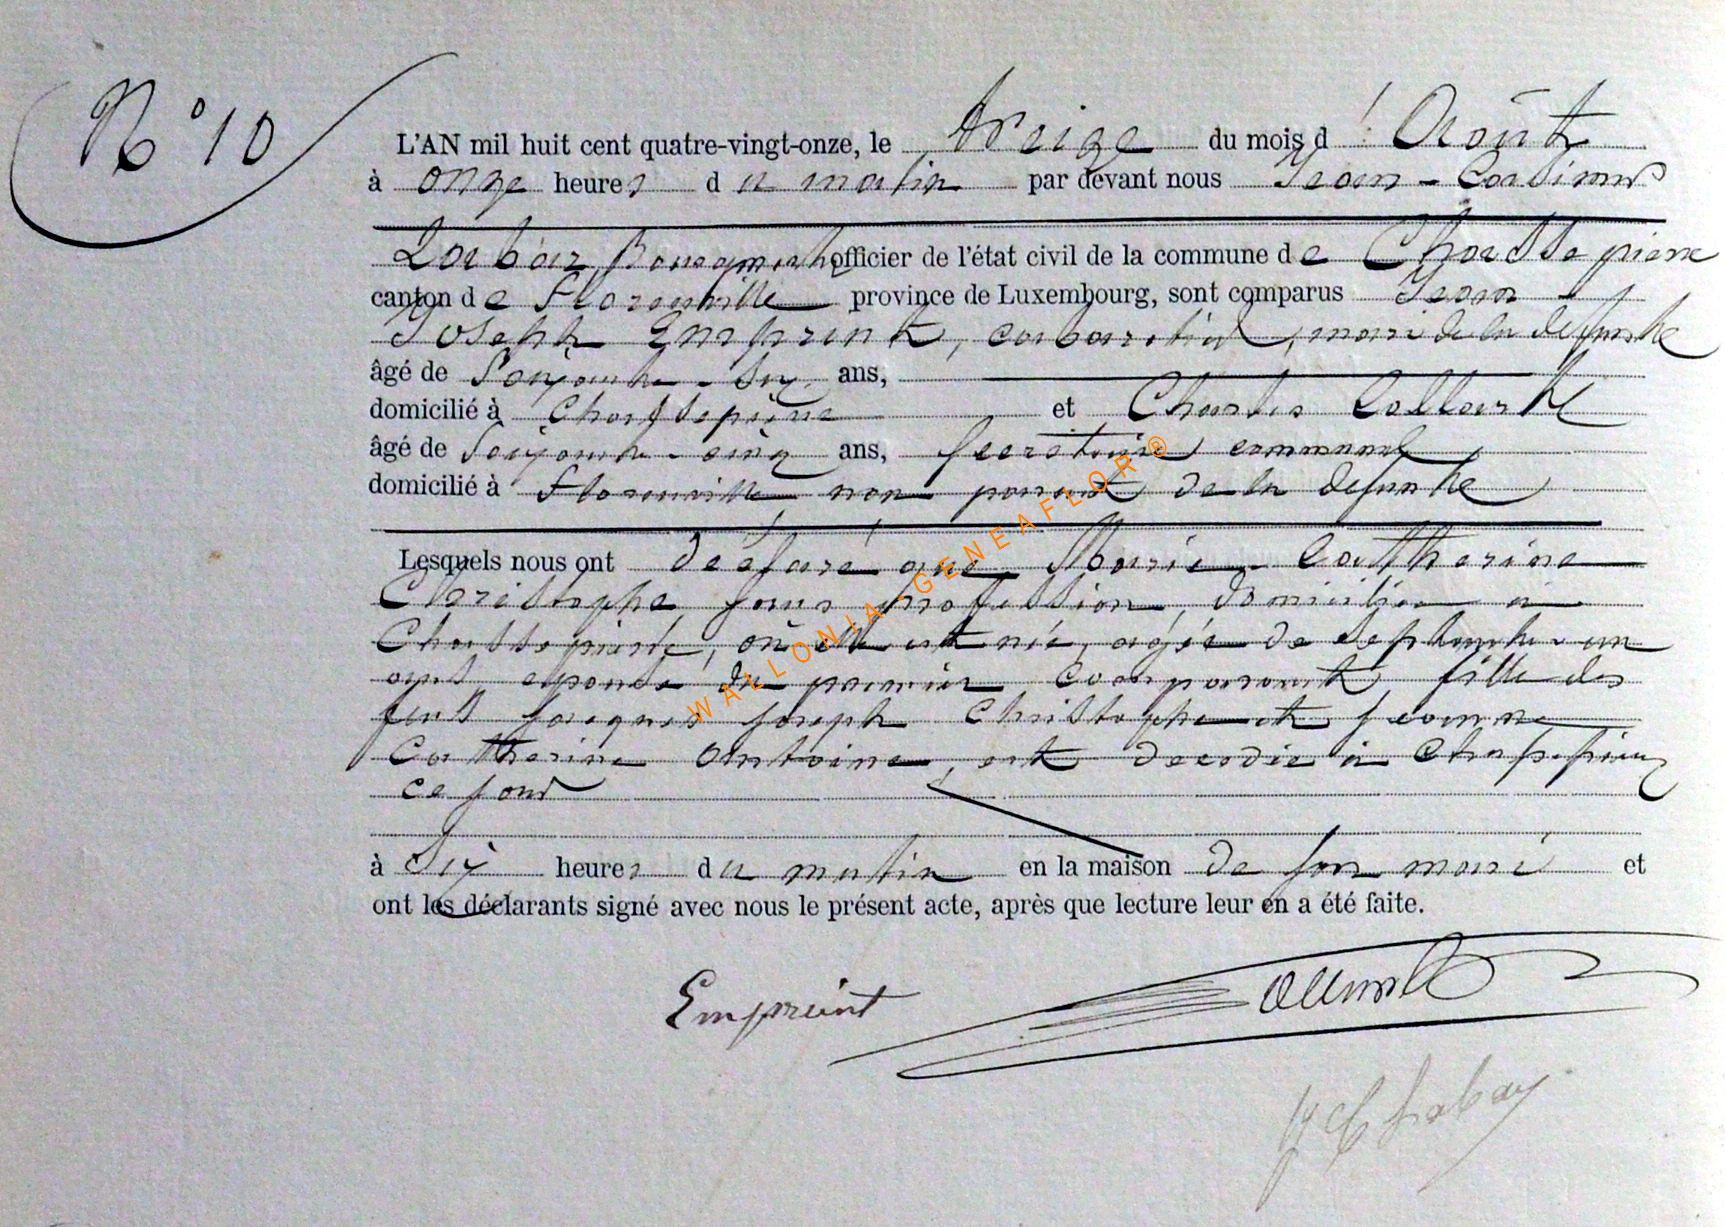 N° 10
L'AN mil huit cent quatre-vingt-onze, le treize du mois d' Août
à onze heures du matin par devant nous Jean - Casimir
Labaz Bourgmestre officier de l'état civil de la commune de Chassepierre
canton de Florenville province de Luxembourg, sont comparus Jean -
Joseph Empreint, cabaretier, mari de la défunte
âgé de Soixante - six ans,
domicilié à Chassepierre et Charles Collard
âgé de Soixante - cinq ans, Secrétaire communal
domicilié à Florenville non parent de la défunte
Lesquels nous ont déclaré que Marie - Catherine
Christophe sans profession, domiciliée à
Chassepierre, où elle est née, agée de septante - un
ans épouse du premier comparant, fille des
feus Jacques Joseph Christophe et Jeanne
Catherine Antoine, est décédée à Chassepierre
ce jour
à six heures du matin en la maison de son mari et
ont les déclarants signé avec nous le présent acte, après que lecture leur en a été faite.
Empreint
JC Labay
WALLONIA - GENEAFLOR ®